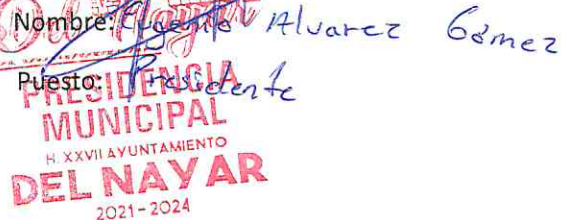 Nombre: Eugenio Alvarez Gómez
Puesto: Presidente
PRESIDENCIA
MUNICIPAL
H. XXVII AYUNTAMIENTO
DEL NAYAR
2021-2024